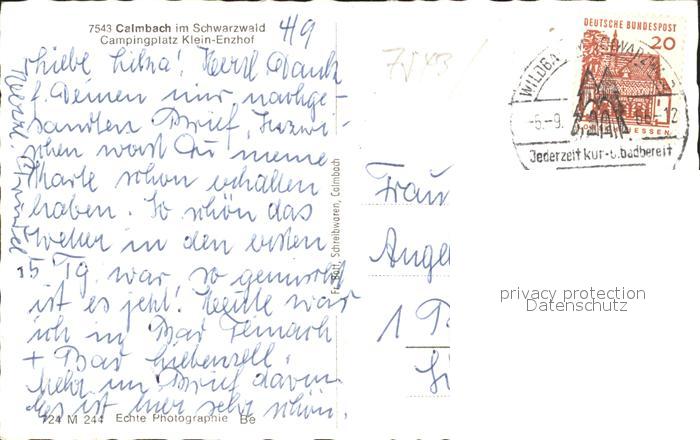 7543 Calmbach im Schwarzwald
Campingplatz Klein-Enzhof
4/9
Liebe Luna! Herzl. Dank
f. Deinen mir nachge-
sandten Brief. Inzwi-
schen wirst Du meine
Karte schon erhalten
haben. So schön das
Wetter in den ersten
5 Tg. war, so gemischt
ist es jetzt! Heute war
ich in Bad Teinach
+ Bad Liebenzell.
Mehr im Brief davon.
Es ist hier sehr schön.
Herzl.
724 M 244 Echte Photographie Be
Schreibwaren, Calmbach
7543
DEUTSCHE BUNDESPOST
20
WILDBAD SCHWARZW
-5.-9. -12
Jederzeit kur-u.badbereit
Frau
Ange
1
privacy protection
Datenschutz